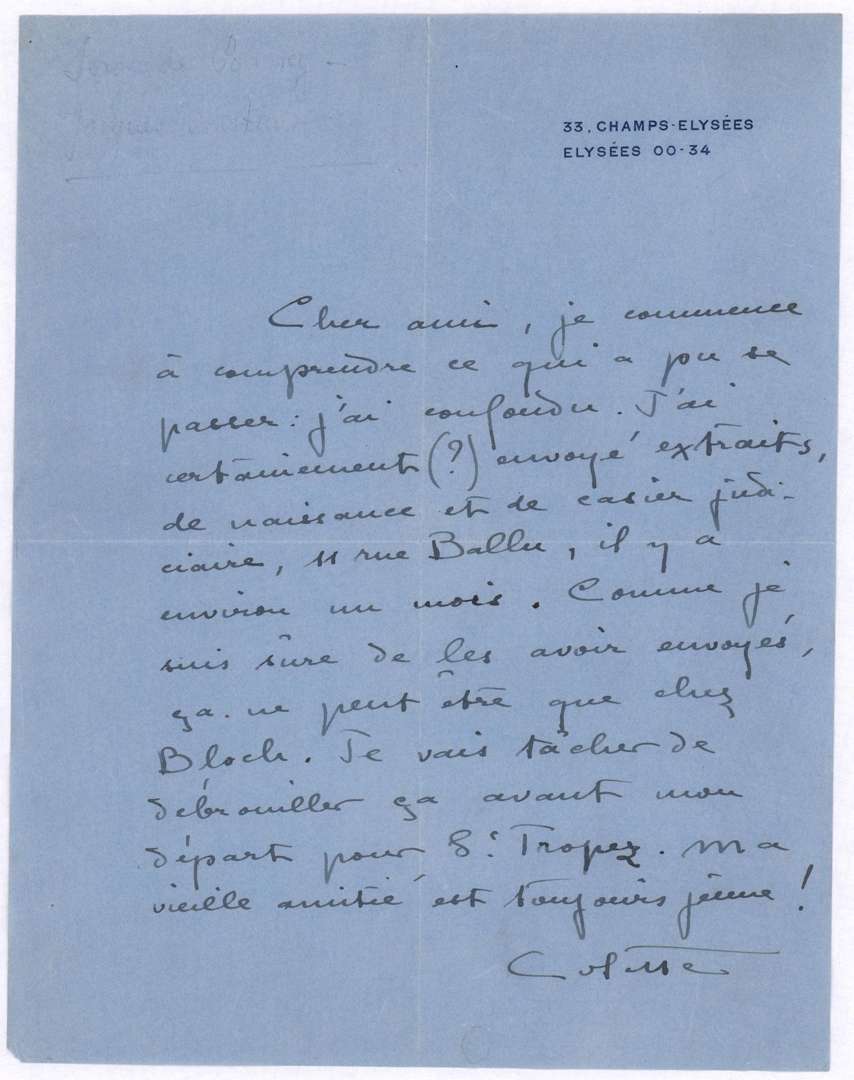 33, CHAMPS-ELYSÉES
ELYSÉES 00-34
Cher ami, je commence
à comprendre ce qui a pu se
passer : j'ai confondu. J'ai
certainement (?) envoyé extraits,
de naissance et de casier judi-
ciaire, 11 rue Ballu, il y a
environ un mois. Comme je
suis sûre de les avoir envoyés,
ça ne peut être que chez
Bloch. Je vais tâcher de
débrouiller ça avant mon
départ pour St Tropez. Ma
vieille amitié est toujours jeune !
Colette